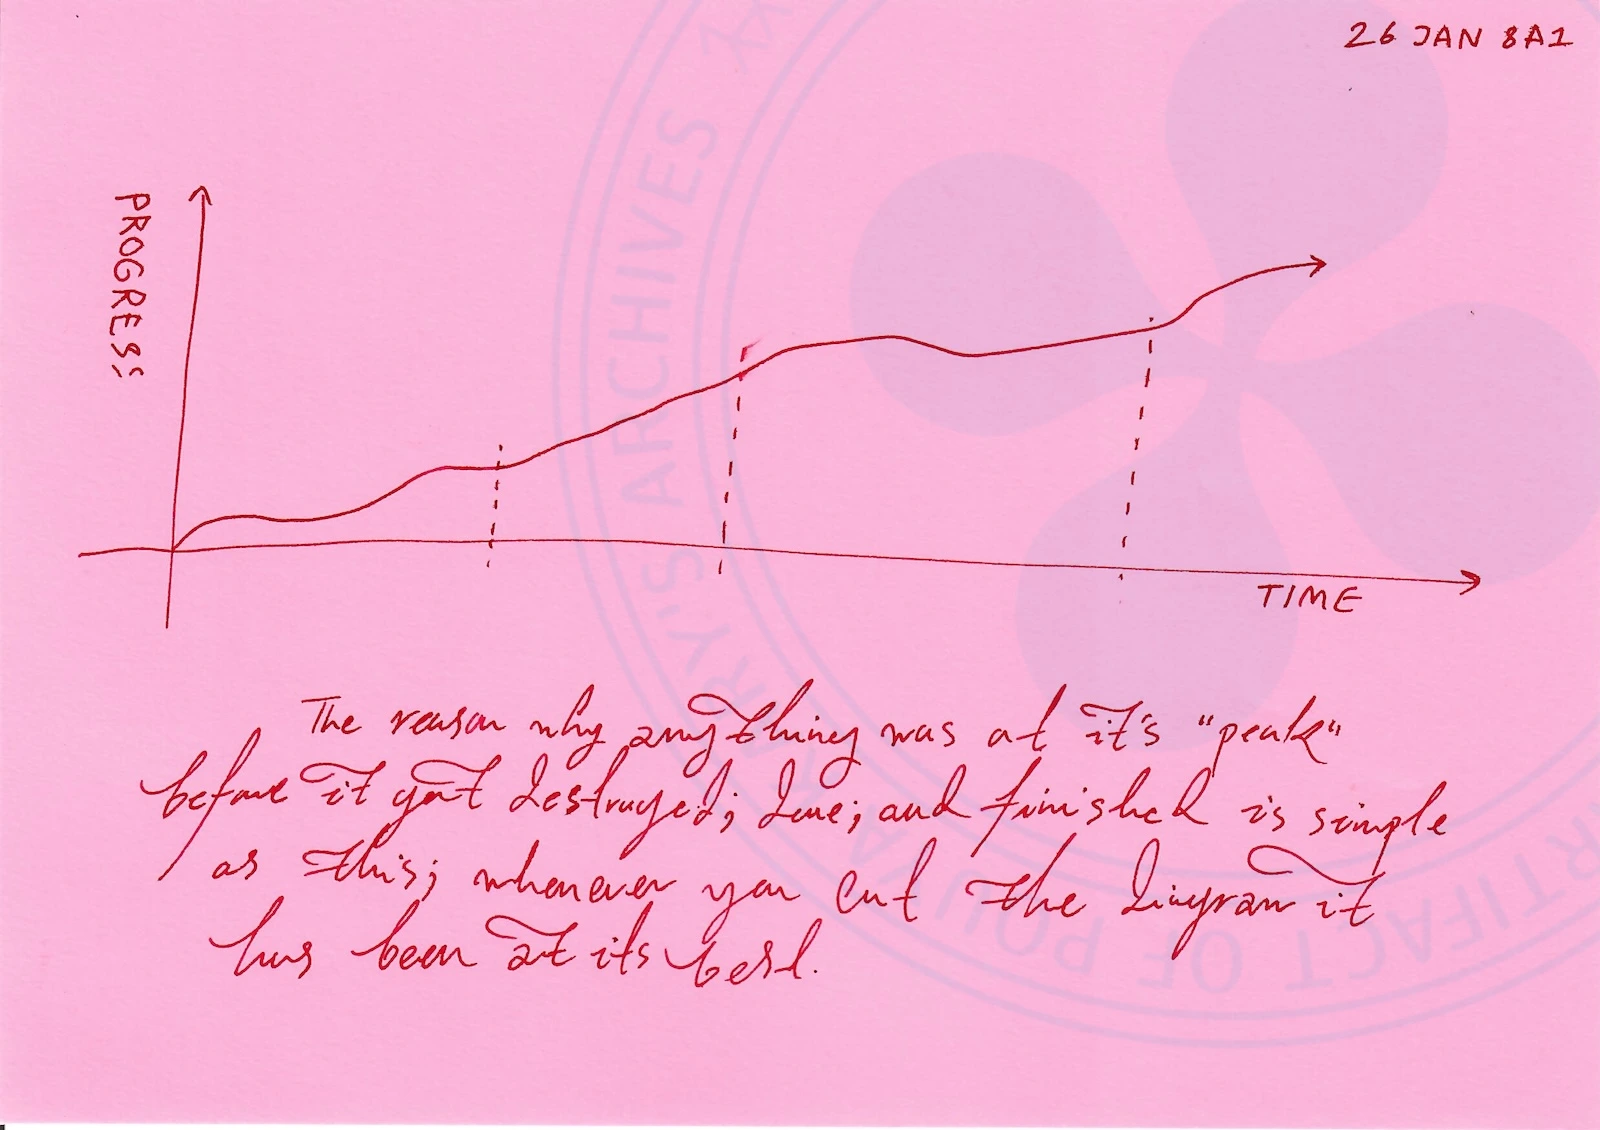 26 JAN 8A1
PROGRESS
TIME
The reason why anything was at it's "peak"
before it got destroyed; done; and finished is simple
as this; whenever you cut the diagram it
has been at its best.
ARTIFACT OF POLJVAKRY'S ARCHIVES